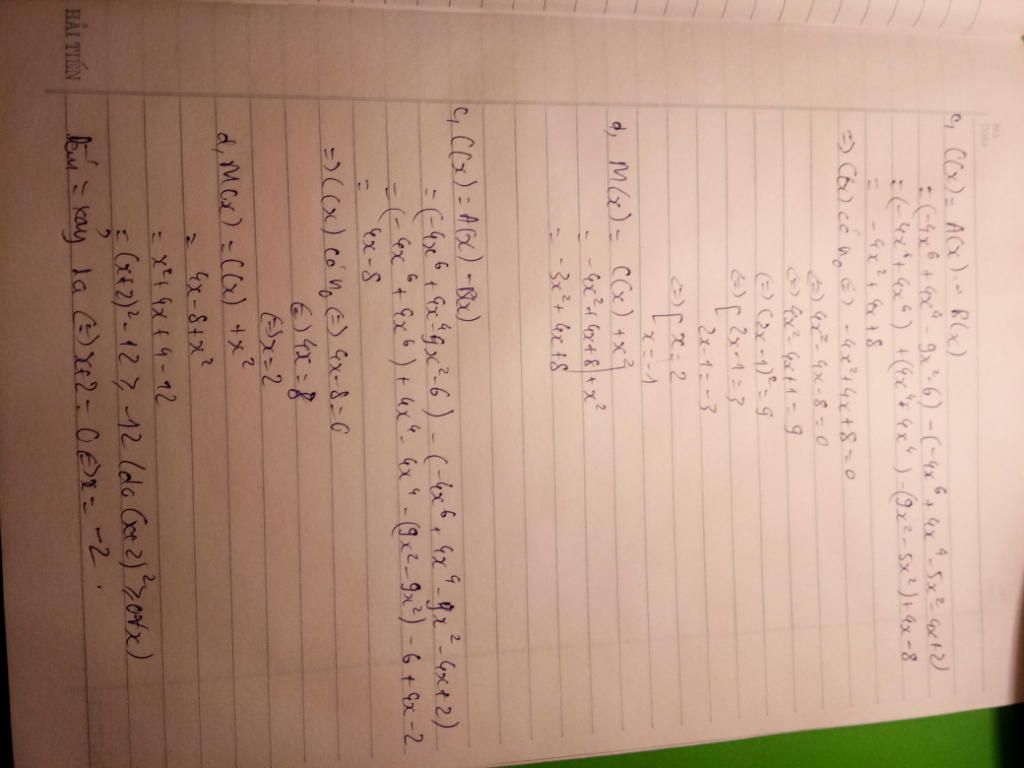 c, C(x) = A(x) - B(x)
= (-4x⁶ + 4x⁴ - 9x² - 6) - (-4x⁶ + 4x⁴ - 5x² - 4x + 2)
= (-4x⁶ + 4x⁶) + (4x⁴ - 4x⁴) - (9x² - 5x²) + 4x - 8
= -4x² + 4x + 8
=> C(x) có n₀ (=) -4x² + 4x + 8 = 0
(=) 4x² - 4x - 8 = 0
(=) 4x² - 4x + 1 = 9
(=) (2x - 1)² = 9
(=) [ 2x - 1 = 3
2x - 1 = -3
(=) [ x = 2
x = -1
d, M(x) = C(x) + x²
= -4x² + 4x + 8 + x²
= -3x² + 4x + 8
c, C(x) = A(x) - B(x)
= (-4x⁶ + 4x⁴ - 9x² - 6) - (-4x⁶ + 4x⁴ - 9x² - 4x + 2)
= (-4x⁶ + 4x⁶) + 4x⁴ - 4x⁴ - (9x² - 9x²) - 6 + 4x - 2
= 4x - 8
=) C(x) có n₀ (=) 4x - 8 = 0
(=) 4x = 8
(=) x = 2
d, M(x) = C(x) + x²
= 4x - 8 + x²
= x² + 4x + 4 - 12
= (x + 2)² - 12 ≥ -12 (do (x + 2)² ≥ 0 ∀x)
Dấu = xảy ra (=) x + 2 = 0 (=) x = -2.
HẢI TIẾN